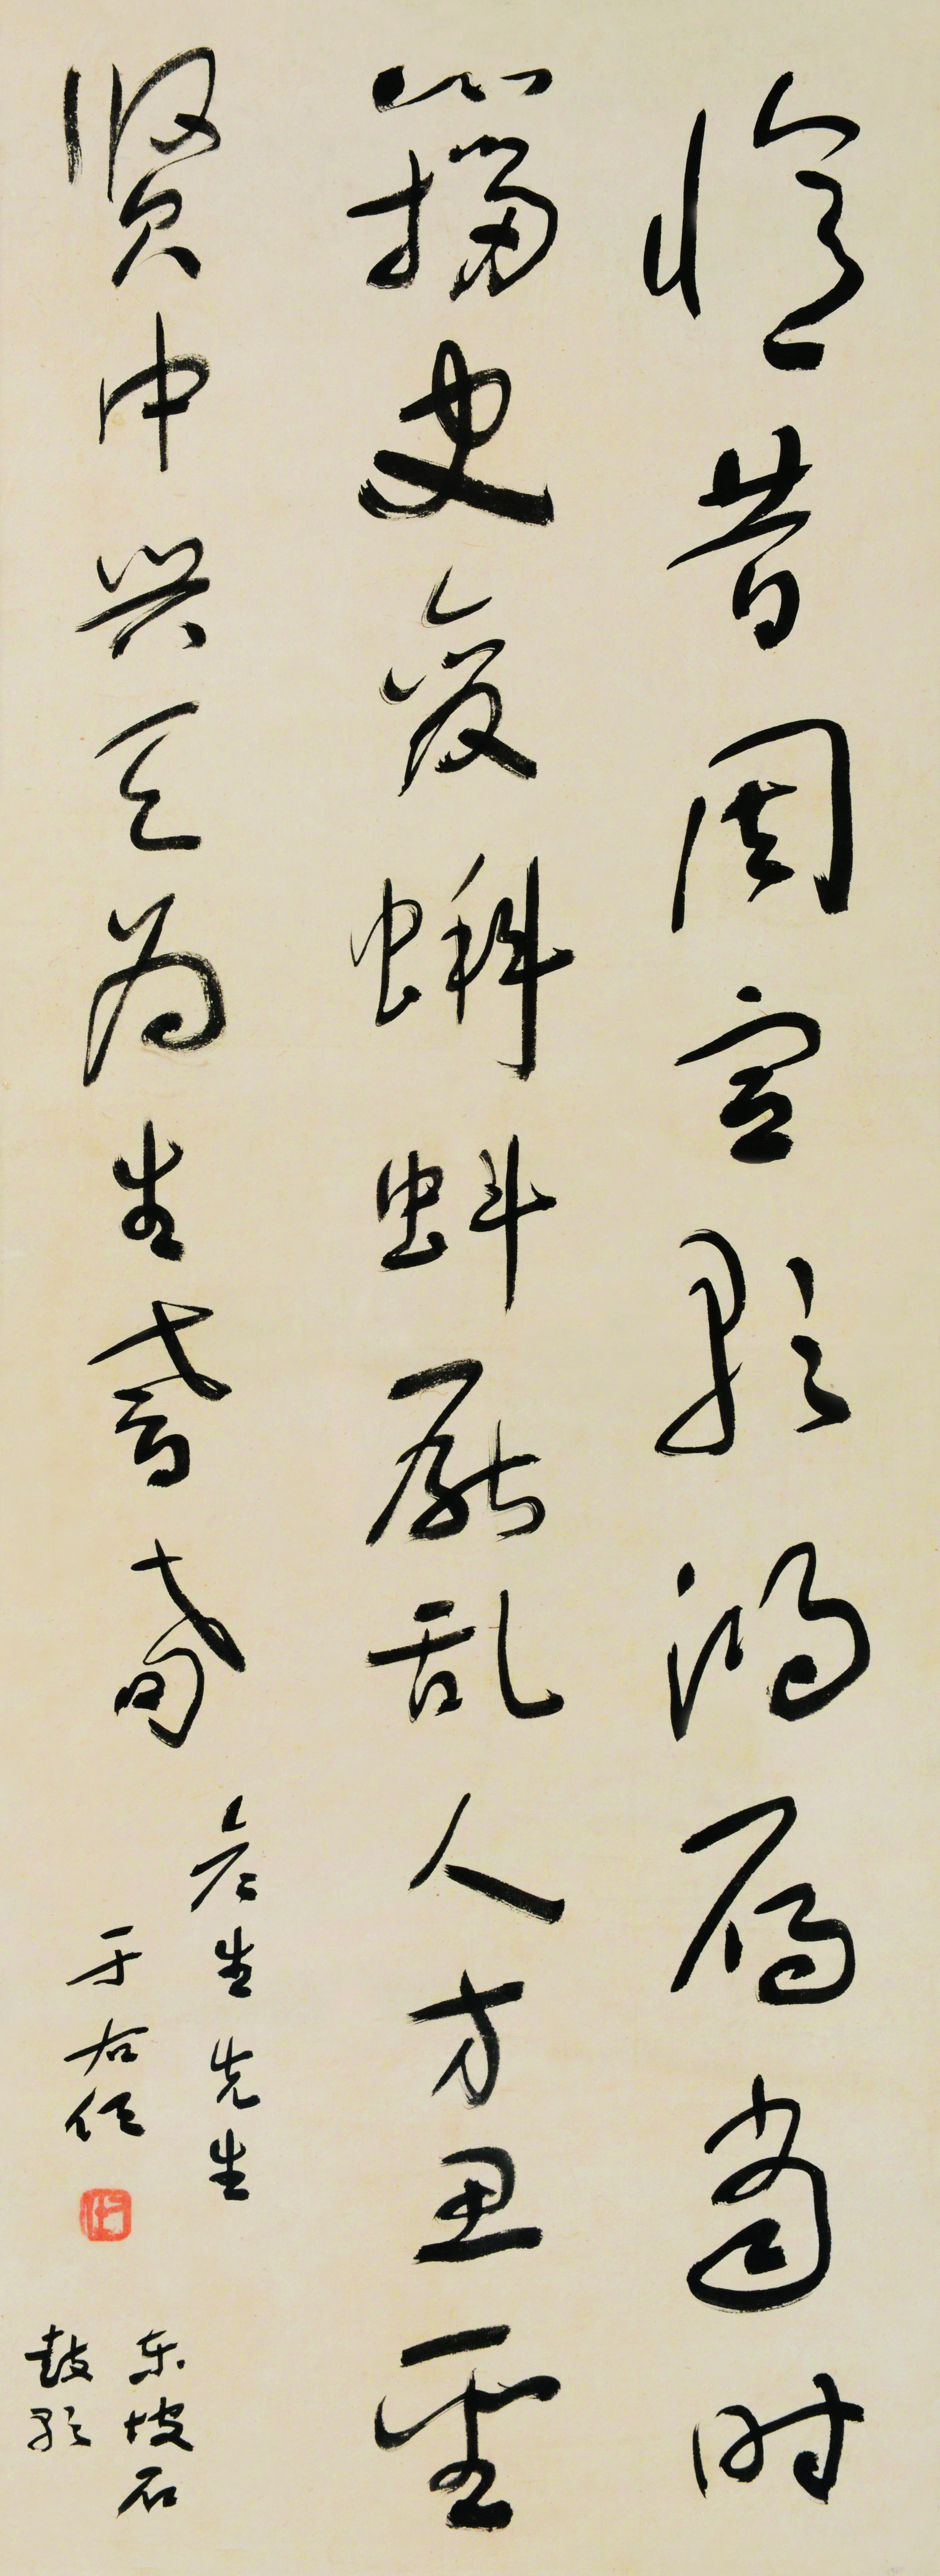 憶昔周宣歌鴻雁當時
籀史變蝌蚪厭乱人方思聖
賢中興天為生耆耇
生先生
于右任
東坡石
鼓歌